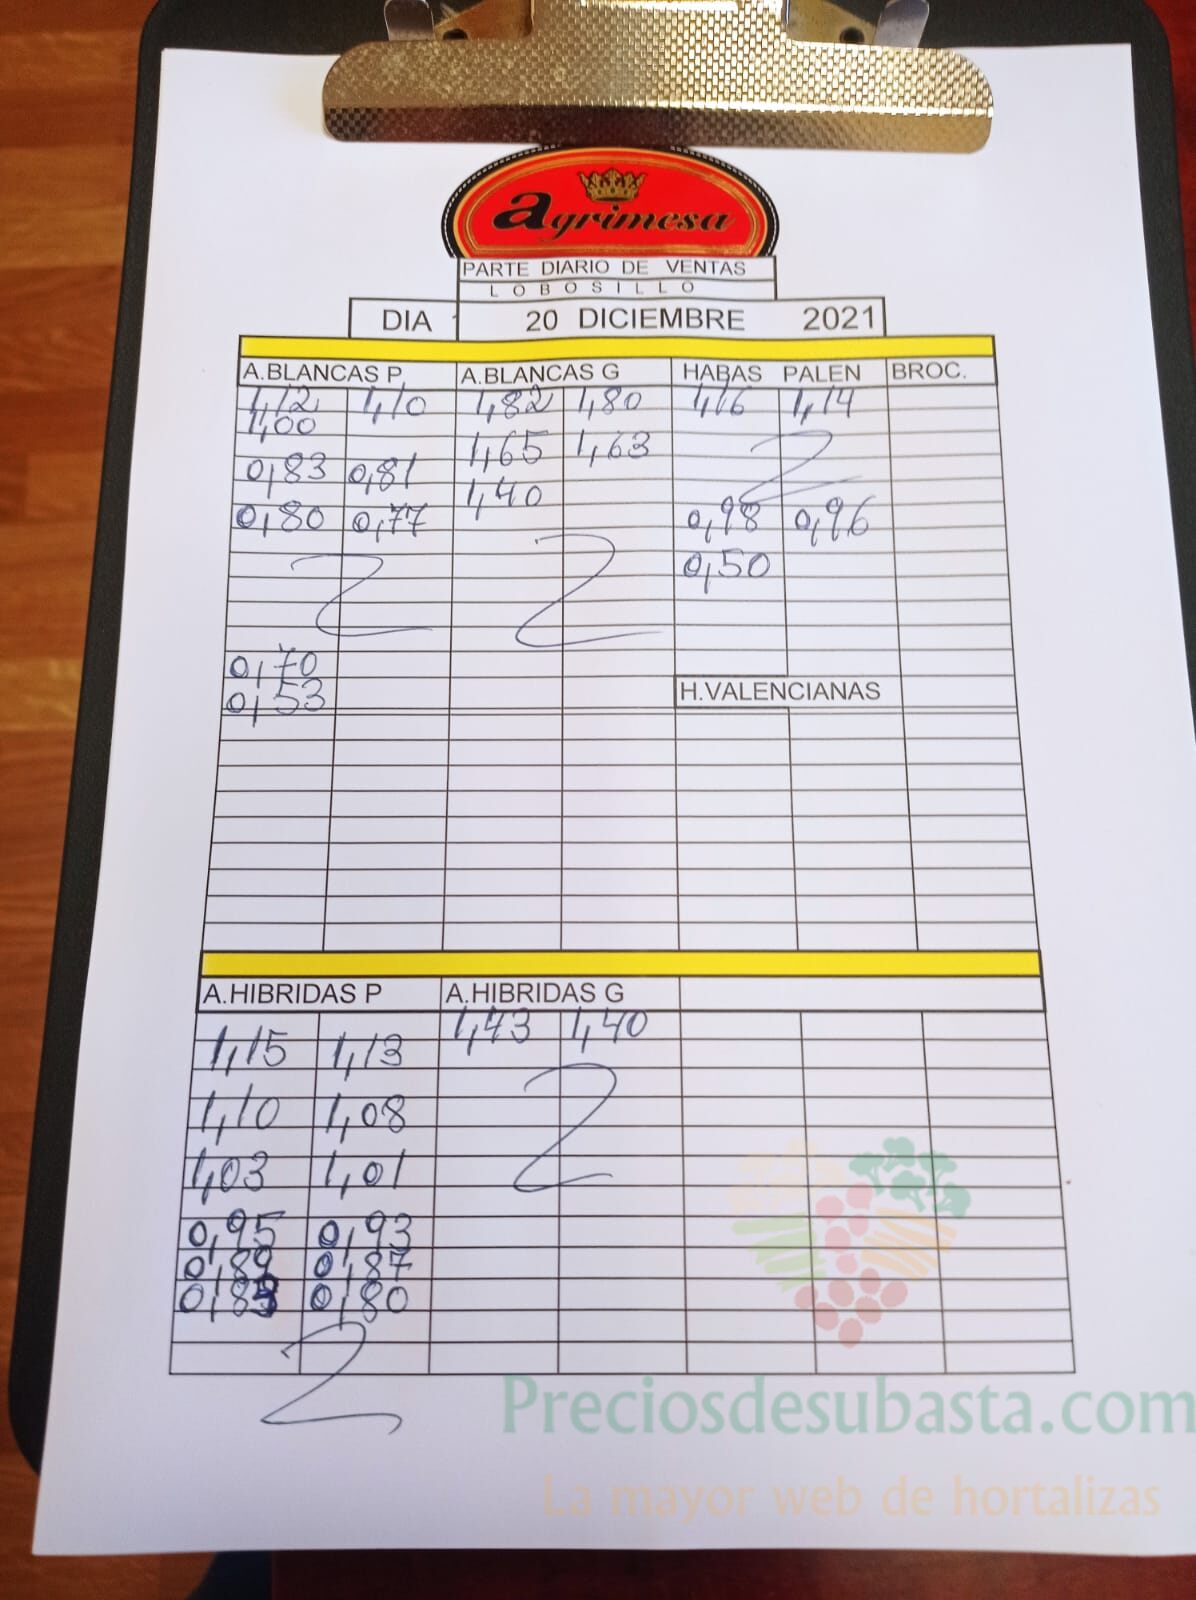 agrimesa
PARTE DIARIO DE VENTAS
LOBOSILLO
DIA 20 DICIEMBRE 2021
A.BLANCAS P A.BLANCAS G HABAS PALEN BROC.
1,12 1,10 1,82 1,80 1,16 1,14
1,00
1,65 1,63
0,83 0,81
1,40
0,80 0,77 0,98 0,96
0,50
0,70
0,53
H.VALENCIANAS
A.HIBRIDAS P A.HIBRIDAS G
1,43 1,40
1,15 1,13
1,10 1,08
1,03 1,01
0,95 0,93
0,89 0,87
0,80
Preciosdesubasta.com
La mayor web de hortalizas